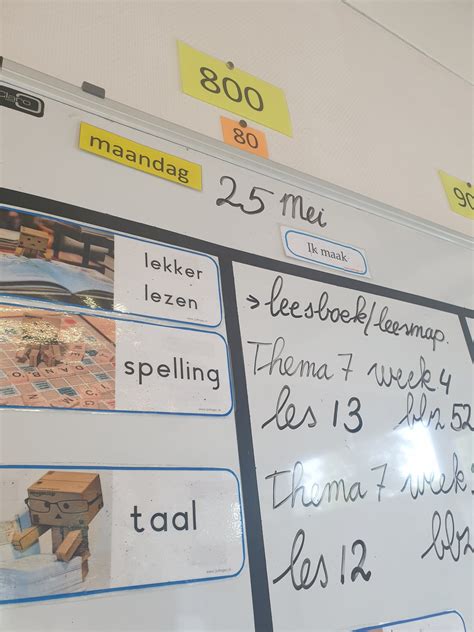 800
80
90
maandag
25 Mei
Ik maak
lekker
lezen
→ leesboek/leesmap.
spelling
Thema 7 week 4
les 13 blz 52
taal
Thema 7 week
les 12 blz